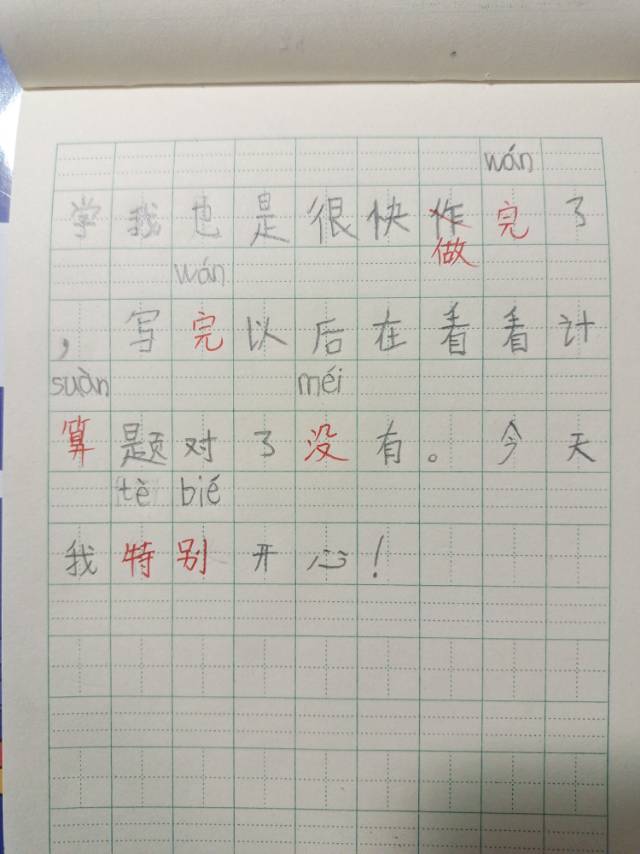 wán
学我也是很快作完了
做
wán
，写完以后在看看计
suàn méi
算题对了没有。今天
tè bié
我特别开心！